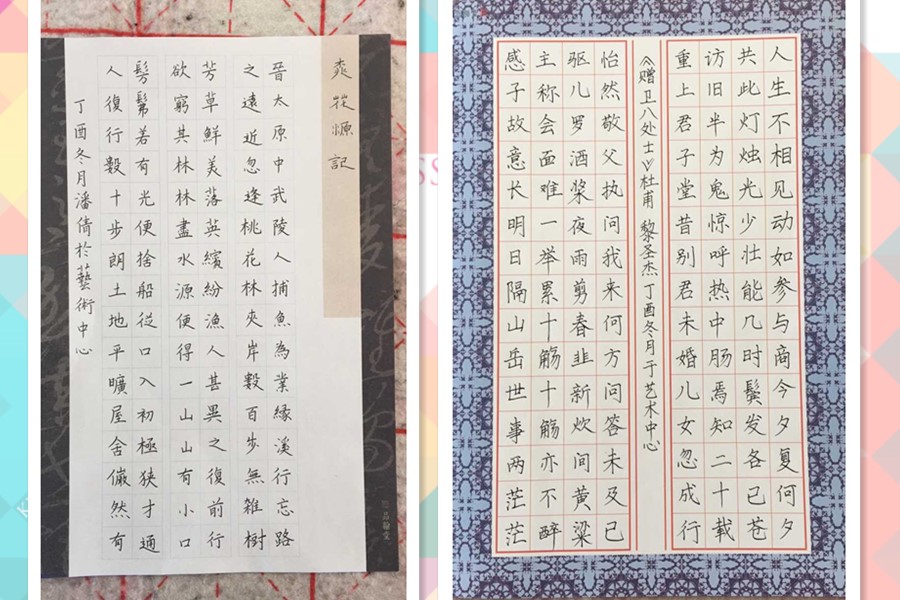 桃花源記
晉太原中武陵人捕魚為業緣溪行忘路
之遠近忽逢桃花林夾岸數百步無雜樹
芳草鮮美落英繽紛漁人甚異之復前行
欲窮其林林盡水源便得一山山有小口
髣髴若有光便捨船從口入初極狹才通
人復行數十步朗土地平曠屋舍儼然有
丁酉冬月潘倩於藝術中心
品翰堂
人生不相见动如参与商今夕复何夕
共此灯烛光少壮能几时鬓发各已苍
访旧半为鬼惊呼热中肠焉知二十载
重上君子堂昔别君未婚儿女忽成行
《赠卫八处士》杜甫 黎圣杰丁酉冬月于艺术中心
怡然敬父执问我来何方问答未及已
驱儿罗酒桨夜雨剪春韭新炊间黄粱
主称会面难一举累十觞十觞亦不醉
感子故意长明日隔山岳世事两茫茫